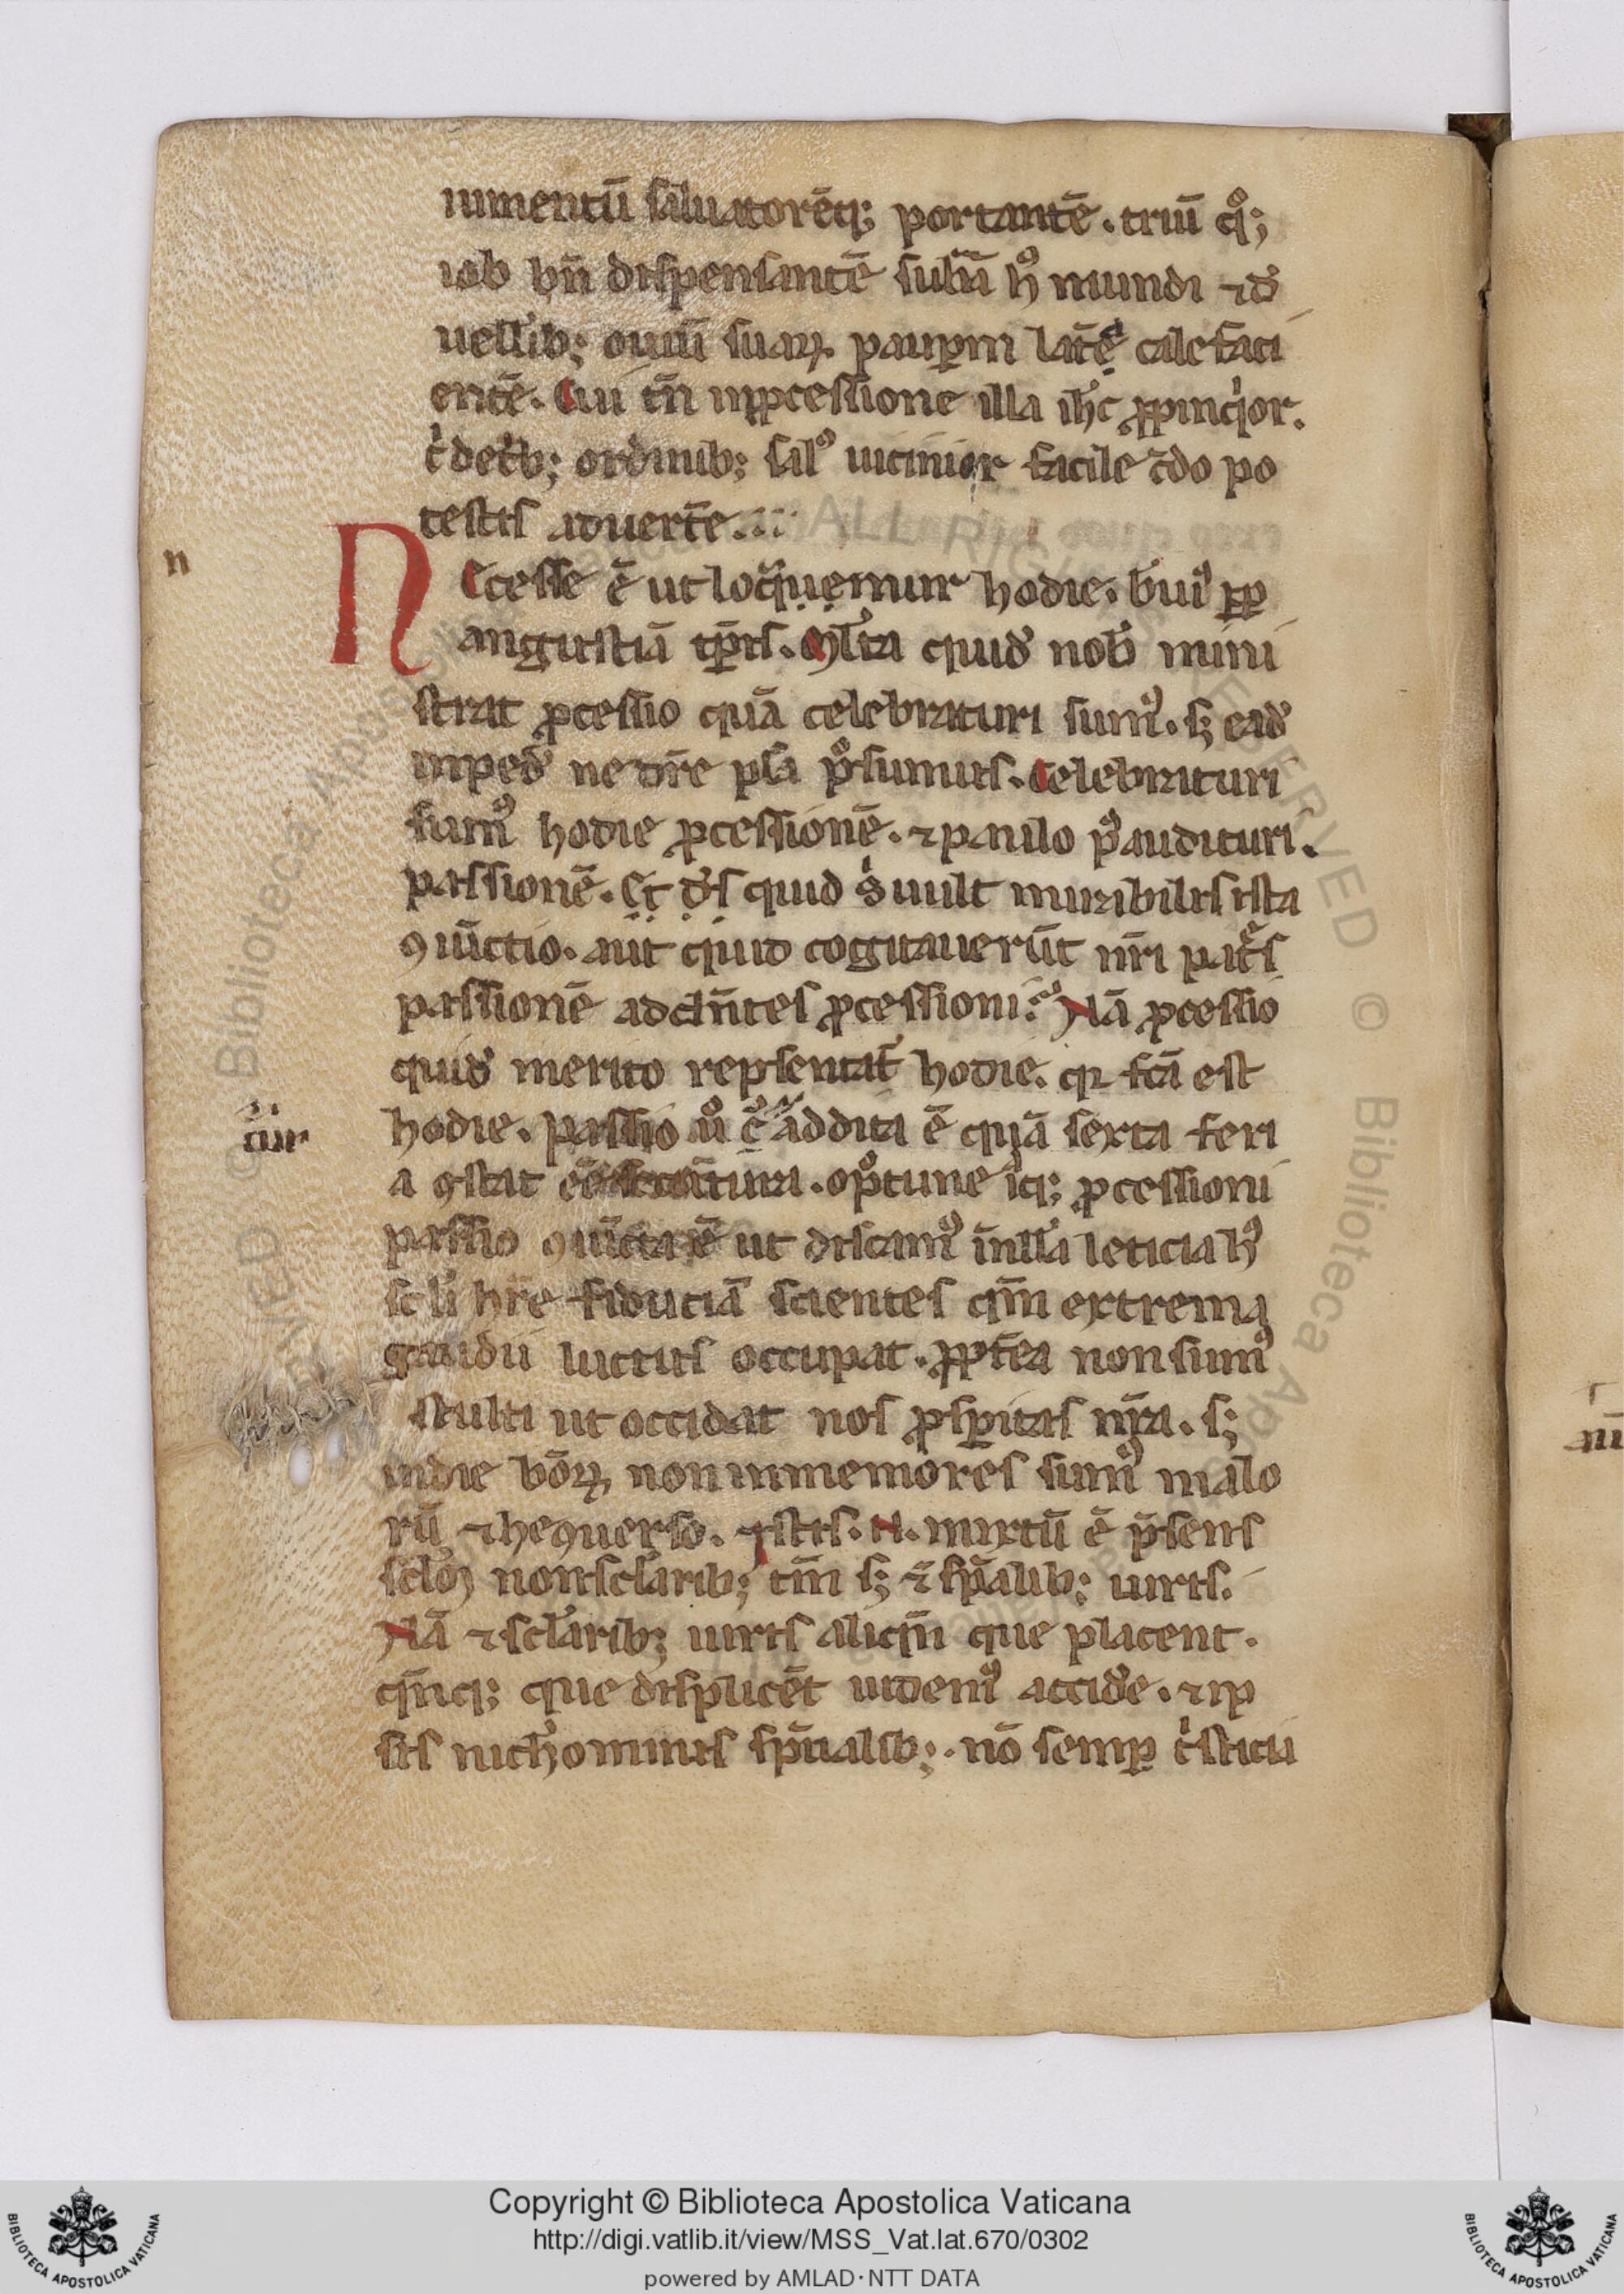 iumentū saluatorēq; portantē. triū qͦ;
iob bn̄ dispensantē subāȷ̄ hꝰ mundi ⁊ đ
uelleribꝫ ouiū suaꝝ. pauꝑm latꝰa calefaci
entē. Cui tn̄ in ꝓcessione illa ihc̄ ꝓpinqͥor.
cͥ de tͥbꝫ ordinibꝫ salꝰ uicinior facile c̄do po
testis aduert̄e.
n
NEcesse ē ut loqͣmur hodie. breuiꝰ ꝓp
angustiā tp̄is. Mlͭa quid̄ nob̄ mini
strat ꝓcessio quā celebraturi sumꝰ. sꝫ ead̄
inped̄ ne dīre plͣa pͦsumus. Celebraturi
sumꝰ hodie ꝓcessionē. ⁊ paulo pꝰ audituri.
passionē. Et đs quid sͥ uult mirabilis ista
ꝯiūctio. aut quid cogitauerūt nr̄i patͤs
passionē addn̄tes ꝓcessioni. Nā ꝓcessio
quid̄ merito rep̄sentat̃ hodie. qꝛ fcā est
hodie. passio ů cͦ addita ē quā sexta feri
tur
a ꝯstat. opͦtune itaqꝫ ꝓcessioni
passio ꝯiūcta ē ut discamꝰ ī nlla leticia hꝰ
scl̄i hr̄e fiduciā scientes qm̄ extrema
gaudii luctus occupat. ꝓpt̄ea non simꝰ
stulti ut occidat nos ꝓsꝑitas nr̄a. sꝫ
in die bōꝝ non inmemores simꝰ malo
rū ⁊ he ꝯuerso. ⁊ istis. N. mixtū ē p̄sens
sclm̄ non sclaribꝫ tm̄ sꝫ ⁊ sp̄alibꝫ uiris.
Nā ⁊ sclaribꝫ uiris aliqn̄ que placent.
qn̄qꝫ que displicēt uidemꝰ accid̄e. ⁊ ip
sis nich̄ominus sp̄ualibꝫ. nō semꝑ tͥsticia
Copyright © Biblioteca Apostolica Vaticana
http://digi.vatlib.it/view/MSS_Vat.lat.670/0302
powered by AMLAD·NTT DATA
BIBLIOTECA APOSTOLICA VATICANA
BIBLIOTECA APOSTOLICA VATICANA